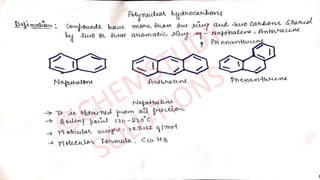 Polynuclear hydrocarbons
Definition: Compounds have more than one ring and two carbons shared
by two or more aromatic ring eg - Napthalene, Anthracene
& Phenanthrene
Napthalene Anthracene Phenanthrene
Napthalene
→ It is obtained from oil fraction
→ Boiling point 170-230°C.
→ Molecular weight: 128.17 g/mol
→ Molecular formula: C10 H8